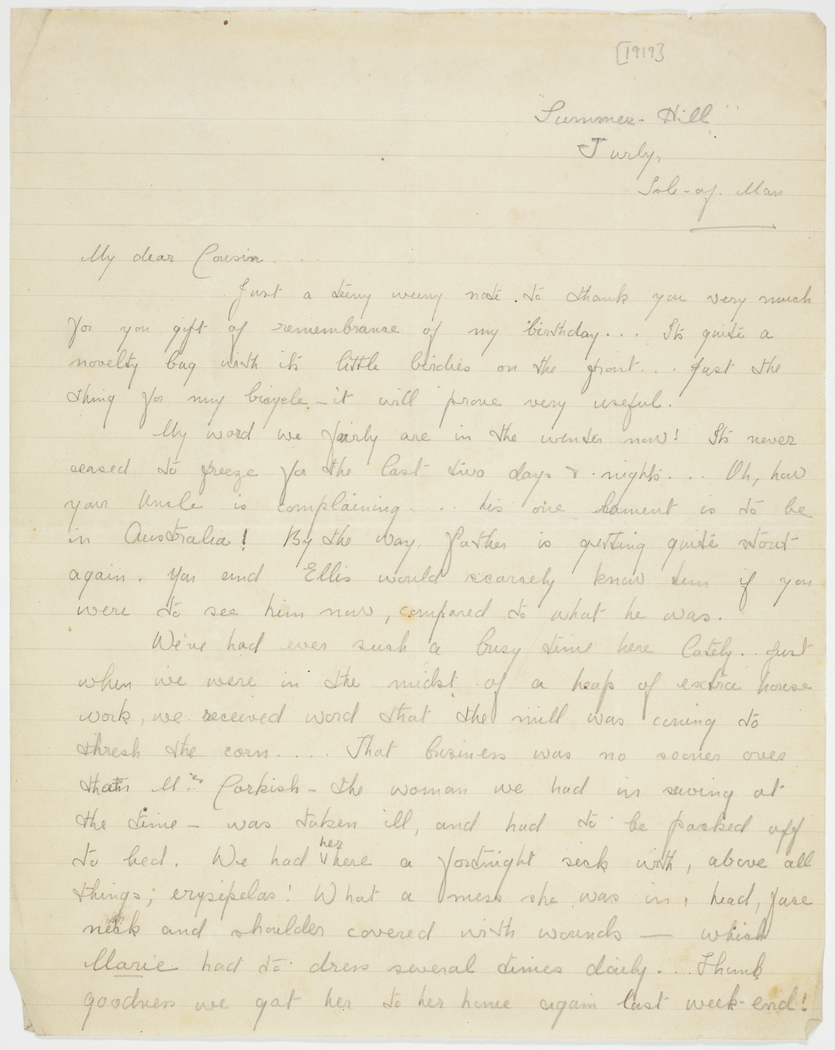 [1919]
"Summer-Hill"
Jurby,
Isle-of-Man
My dear Cousin....
Just a teeny weeny note to thank you very much
for you gift of remembranse of my birthday... Its quite a
novelty bag with its little birdies on the front... Just the
thing for my bicycle - it will prove very useful.
My word we fairly are in the winter now! Its never
ceased to freeze for the last two days & nights... Oh, how
your Uncle is complaining... his one lament is to be
in Australia! By the way, father is getting quite stout
again. You and Ellis would scarsely know him if you
were to see him now, compared to what he was.
We've had ever such a busy time here lately.. Just
when we were in the midst of a heap of extra house
work, we received word that the mill was coming to
thresh the corn.... That business was no sooner over
than Mrs Corkish - the woman we had in sewing at
the time - was taken ill, and had to be packed off
to bed. We had her here a fortnight sick with, above all
things; erysipelas! What a mess she was in, head, face
neck and shoulder covered with wounds — which
Marie had to dress several times daily... Thank
goodness we got her to her home again last week-end!